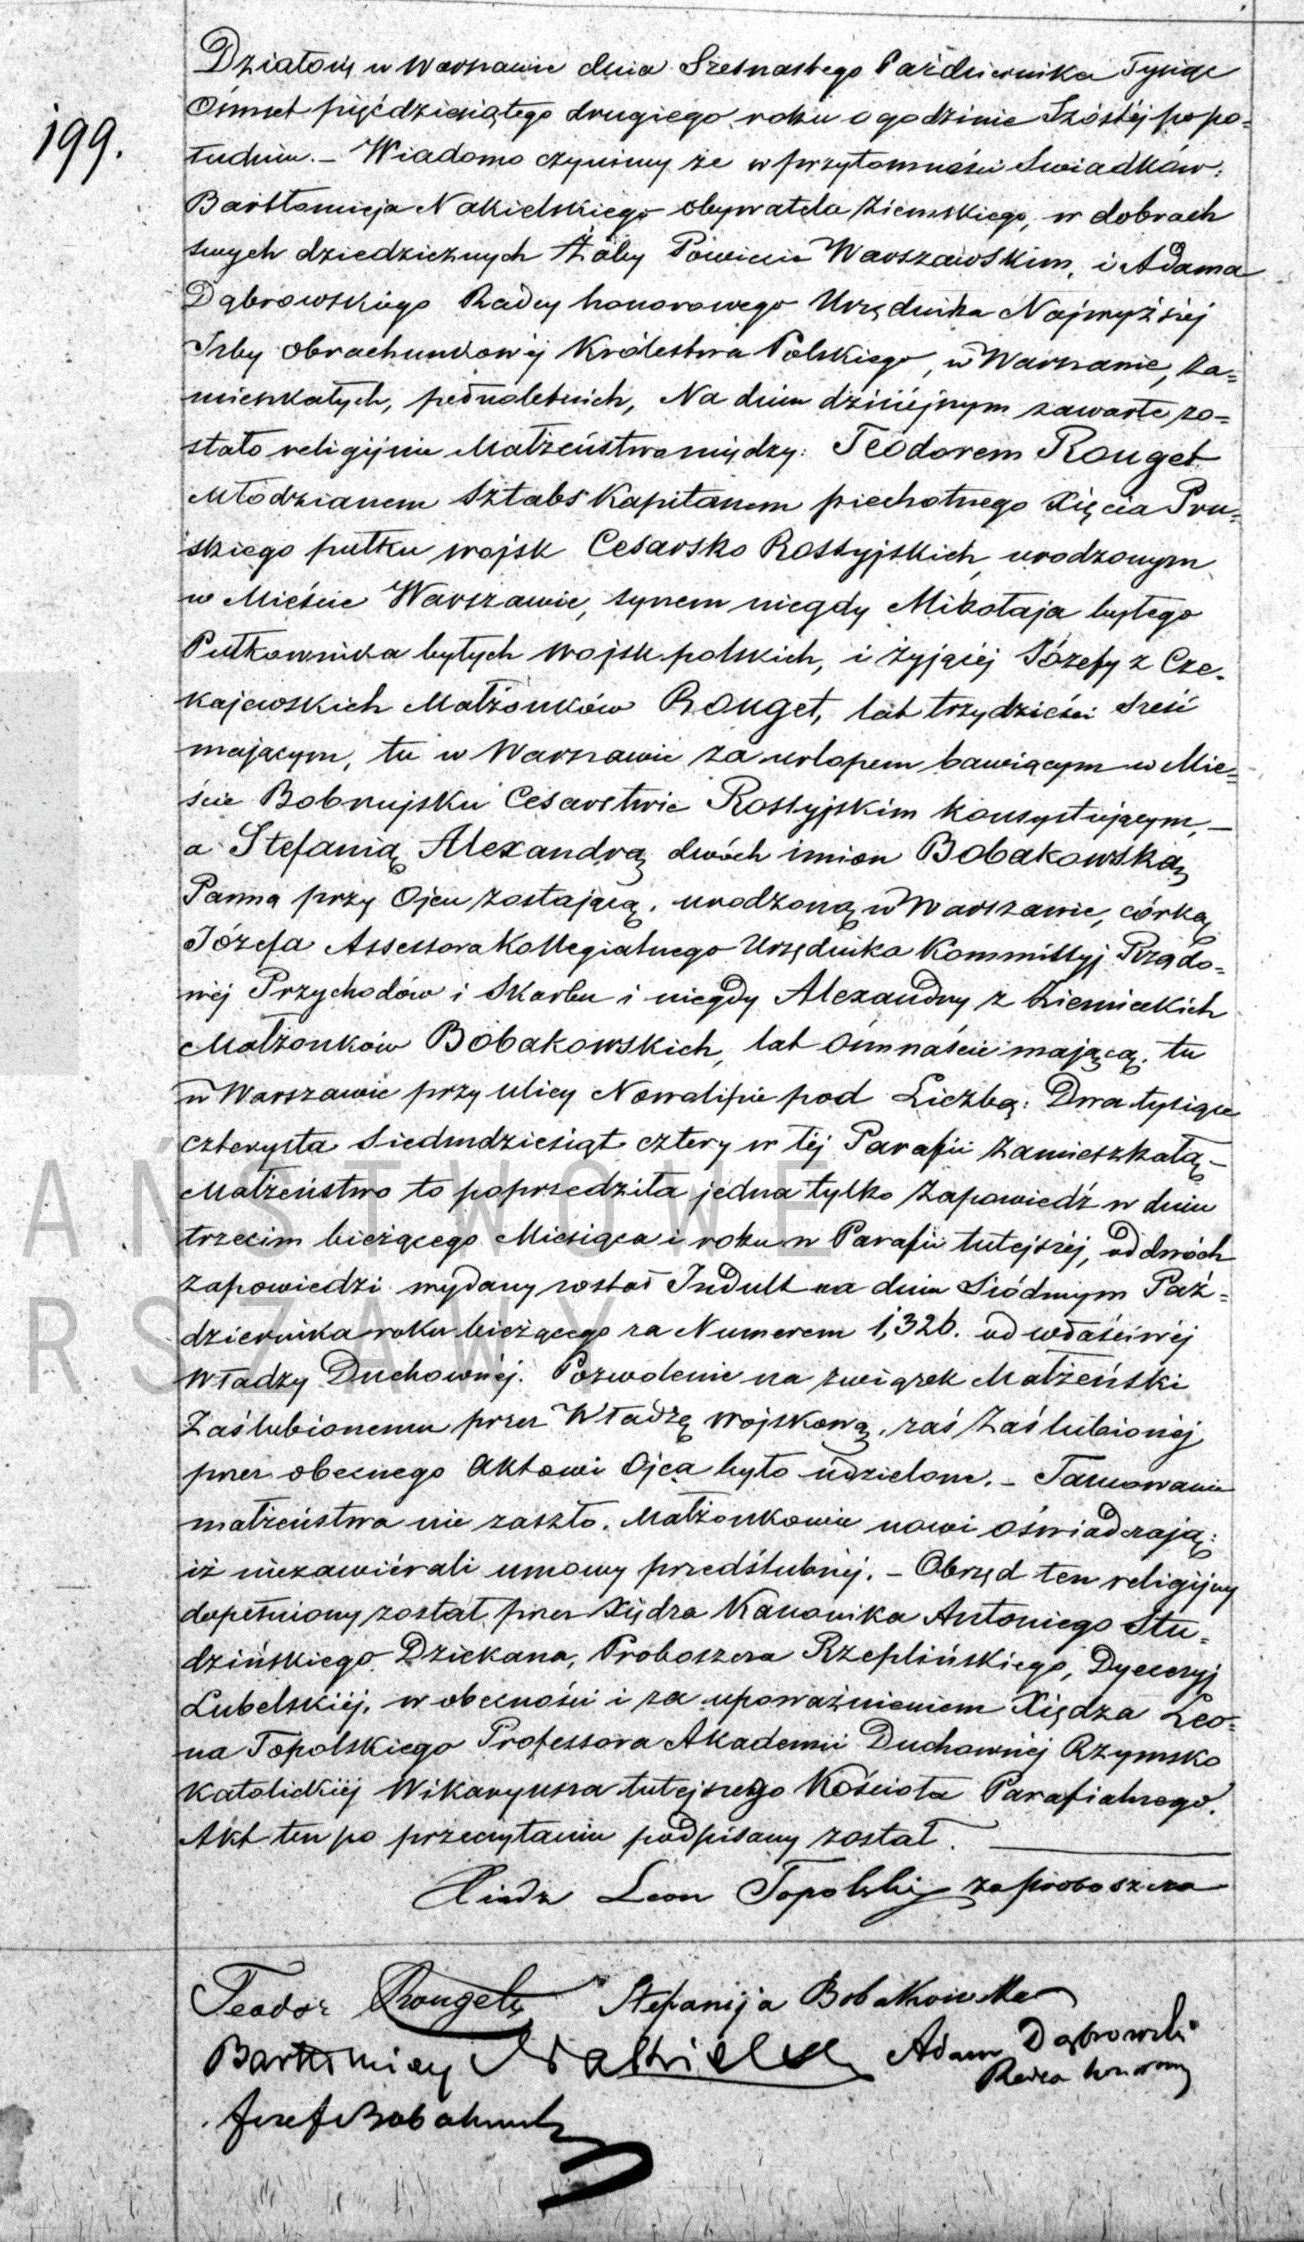 199.
Działo się w Warszawie dnia Szesnastego Października Tysiąc
Ośmset pięćdziesiątego drugiego roku o godzinie Szóstéj po po=
łudniu. – Wiadomo czynimy że w przytomności Swiadków:
Bartłomieja Nakielskiego obywatela ziemskiego, w dobrach
swych dziedzicznych Powiecie Warszawskim, i Adama
Dąbrowskiego Radcy honorowego Urzędnika Najwyższéj
Izby obrachunkowéj Królestwa Polskiego, w Warszawie, za=
mieszkałych, pełnoletnich, Na dniu dzisiéjszym zawarte zo=
stało religijnie Małżeństwo między: Teodorem Rouget
Młodzianem Sztabs Kapitanem piechotnego Xięcia Pru=
skiego pułku wojsk Cesarsko Rossyjskich, urodzonym
w Mieście Warszawie, synem niegdy Mikołaja byłego
Pułkownika byłych wojsk polskich, i żyjącéj Józefy z Cze=
kajewskich Małżonków Rouget, lat trzydzieści sześć
mającym, tu w Warszawie za urlopem bawiącym w Mie=
ście Bobrujsku Cesarstwie Rossyjskim konsystującym, –
a Stefanią Alexandrą dwóch imion Bobakowską
Panną przy Ojcu zostającą, urodzoną w Warszawie, córką
Józefa Assessora Kollegialnego Urzędnika Kommissyj Rządo=
wéj Przychodów i Skarbu i niegdy Alexandry z Ziemieckich
Małżonków Bobakowskich, lat Ośmnaście mającą, tu
w Warszawie przy ulicy Nowolipie pod Liczbą: Dwa tysiące
czterysta siedmdziesiąt cztery w téj Parafii zamieszkałą –
Małżeństwo to poprzedziła jedna tylko zapowiedź w dniu
trzecim bieżącego Miesiąca i roku w Parafii tutejszéj, od dwóch
zapowiedzi wydany został Indult na dniu Siódmym Paź=
dziernika roku bieżącego za Numerem 1,326. od właściwéj
Władzy Duchownéj. Pozwolenie na związek Małżeński
Zaślubionemu przez Władzę wojskową, zaś Zaślubionéj
przez obecnego Aktowi Ojca było udzielone. – Tamowanie
małżeństwa nie zaszło. Małżonkowie nowi oświadczają:
iż niezawiérali umowy przedślubnéj. – Obrzęd ten religijny
dopełniony został przez Xiędza Kanonika Antoniego Stu=
dzińskiego Dziekana, Proboszcza Rzeplińskiego, Dyecezyj
Lubelskiéj, w obecności i za upoważnieniem Xiędza Leo=
na Topolskiego Professora Akademii Duchownéj Rzymsko
Katolickiéj Wikaryusza tutejszego Kościoła Parafialnego.
Akt ten po przeczytaniu podpisany został.
Xiądz Leon Topolski za proboszcza
Teodor Rouget Stefanija Bobakowska
Bartłomiey Nakielski Adam Dąbrowski
Radca honorowy
Jozef Bobakowski
AŃSTWOWE
RSZAWY